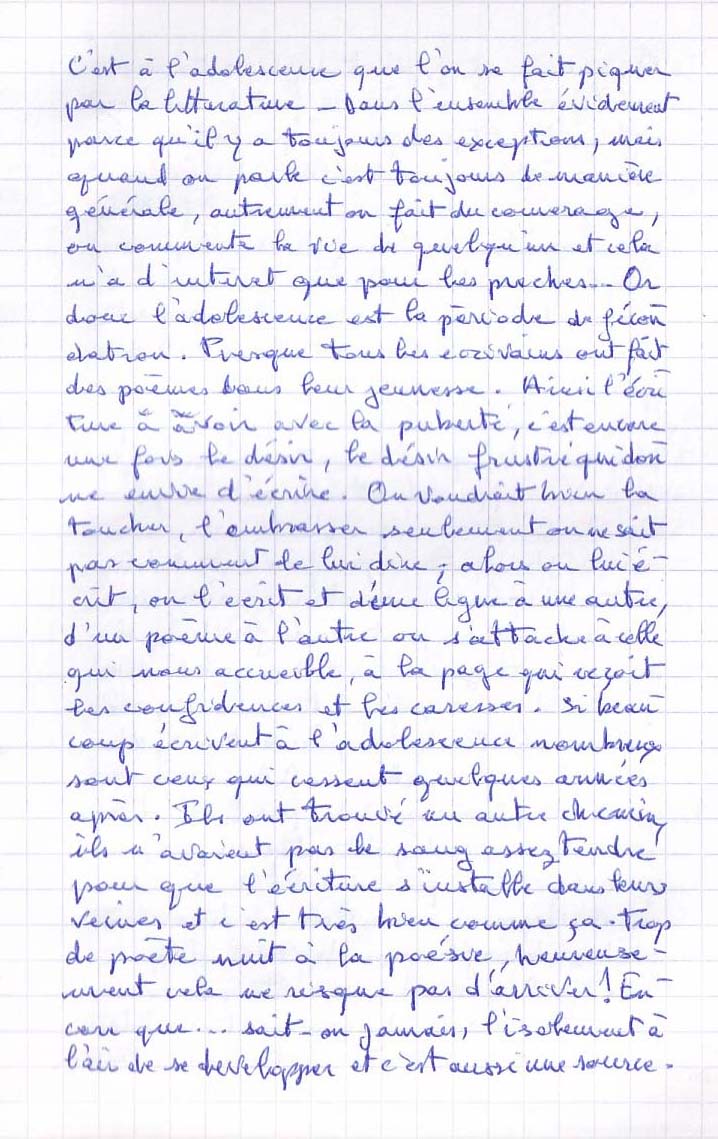 C'est à l'adolescence que l'on se fait piquer
par la littérature - Dans l'ensemble évidement
parce qu'il y a toujours des exceptions, mais
quand on parle c'est toujours de manière
générale, autrement on fait du couverage,
on commente la vie de quelqu'un et cela
n'a d'interet que pour les proches... Or
donc l'adolescence est la période de fécon
dation. Presque tous les écrivains ont fait
des poèmes dans leur jeunesse. Ainsi l'écri
ture à à voir avec la puberté, c'est encore
une fois le désir, le désir frustré qui don
ne envie d'écrire. On voudrait bien la
toucher, l'embrasser seulement on ne sait
pas comment le lui dire ; alors on lui é-
crit, on l'écrit et d'une ligne à une autre,
d'un poème à l'autre on s'attache à celle
qui nous accueille, à la page qui reçoit
les confidences et les caresses. Si beau
coup écrivent à l'adolescence nombreux
sont ceux qui cessent quelques années
après. Ils ont trouvé un autre chemin,
ils n'avaient pas le sang assez tendre
pour que l'écriture s'installe dans leurs
veines et c'est très bien comme ça. Trop
de poète nuit à la poésie, heureuse-
ment cela ne risque pas d'arriver ! En-
core que... sait-on jamais, l'isolement à
l'air de se developper et c'est aussi une source.